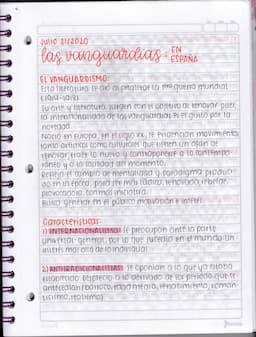 JULIO 21/2020
las vanguardias: EN ESPAÑA
EL VANGUARDISMO:
Esta literatura se dio al finalizar la 1ra guerra mundial
(1914-1918)
Su arte y literatura surgen con el objetivo de innovar pues
la intencionalidad de las vanguardias es el gusto por la
novedad
Nació en Europa, en el siglo XX, se evidencian movimientos
tanto artísticos como culturales que tienen un afán de
renovar, traer lo nuevo y contraponerse a lo contempo-
raneo y a la sociedad del momento.
Reflejó el cambio de mentalidad y paradigma produci-
do en la época, para ser más lúdico, renovado, rebelde,
provocador, formas incontra.
Busca generar en el público motivación e interés.
Características:
1) INTERNACIONALISMO: Se preocupan ante la parte
universal general, por lo que sucedía en el mundo sin
interés más allá de lo individual.
2) ANTITRADICIONALISTAS: Se oponían a lo que ya estaba
establecido respecto a lo derivado de los periodos que le
antecedían (barroco, edad media, renacimiento, roman-
ticismo, realismo)